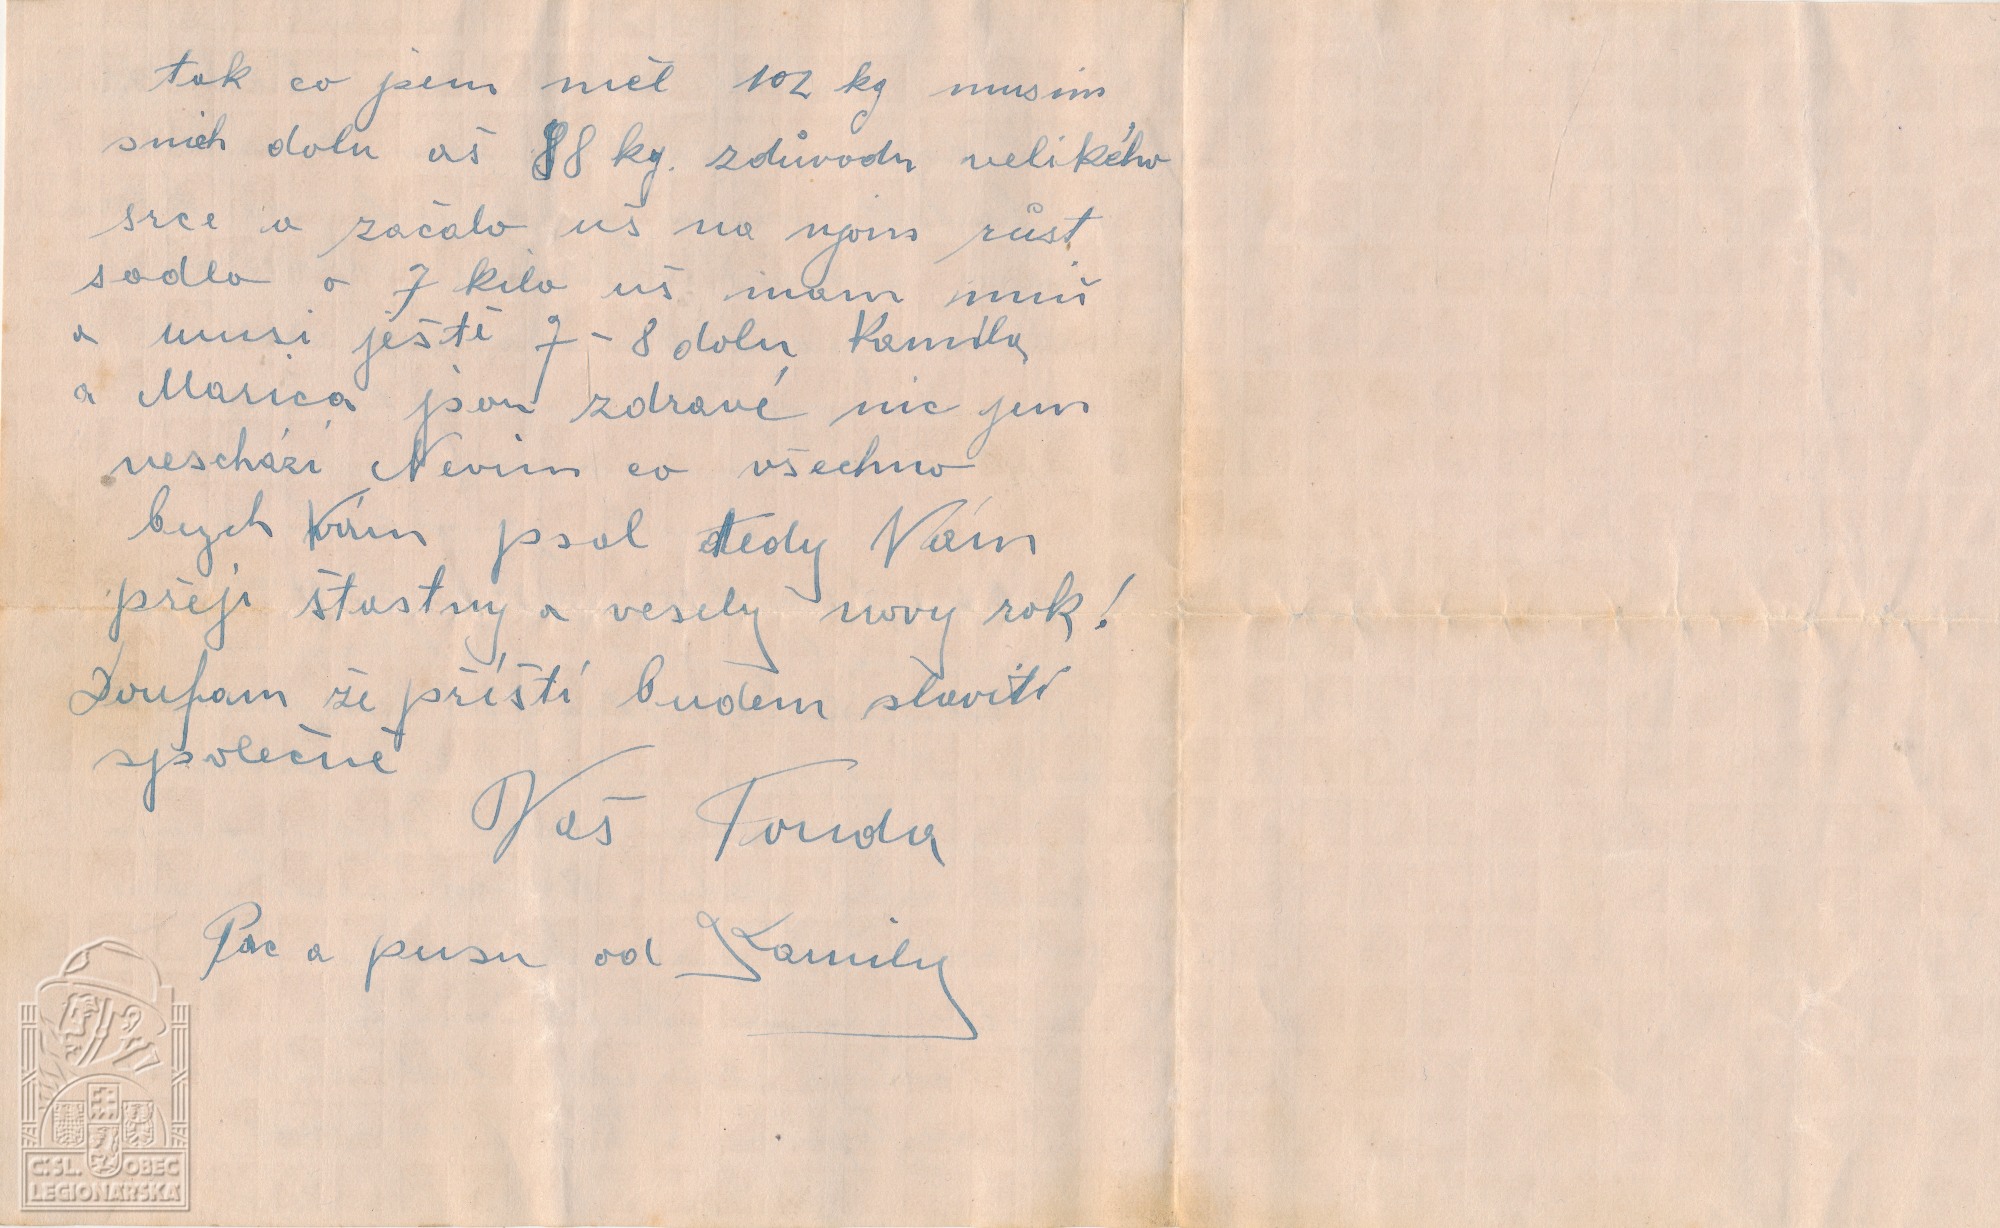 tak co jsem měl 102 kg musim
snich dolu aš 88 kg. zdůvodu velikého
srce a začalo uš na njom růst
sadlo o 7 kilo uš mam miň
a musi ještě 7-8 dolu Kamila
a Marica jsou zdravé nic jem
neschází Nevim co všechno
bych Vám psal tedy Vám
přeji štastny a vesely novy rok!
Doufam že příští budem slaviti
společně
Vaš Tonda
Pac a pusu od Kamily
Č.SL. OBEC
LEGIONÁŘSKÁ